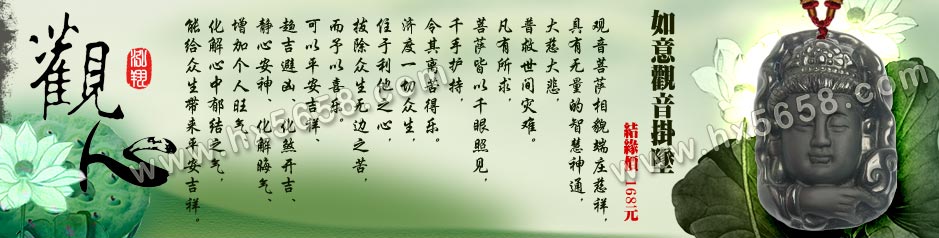 如意觀音掛墜
結緣價 168元
观音菩萨相貌端庄慈祥,
具有无量的智慧神通,
大慈大悲,
普救世间灾难。
凡有所求,
菩萨皆以千眼照见,
千手护持,
令其离苦得乐。
济度一切众生,
住于利他之心,
拔除众生无边之苦,
而予以喜乐。
可以平安吉祥、
趋吉避凶、化煞开吉、
静心安神、化解晦气、
增加个人旺气、
化解心中郁结之气,
能给众生带来平安吉祥。
觀人
www.hy5658.com
www.hy5658.com